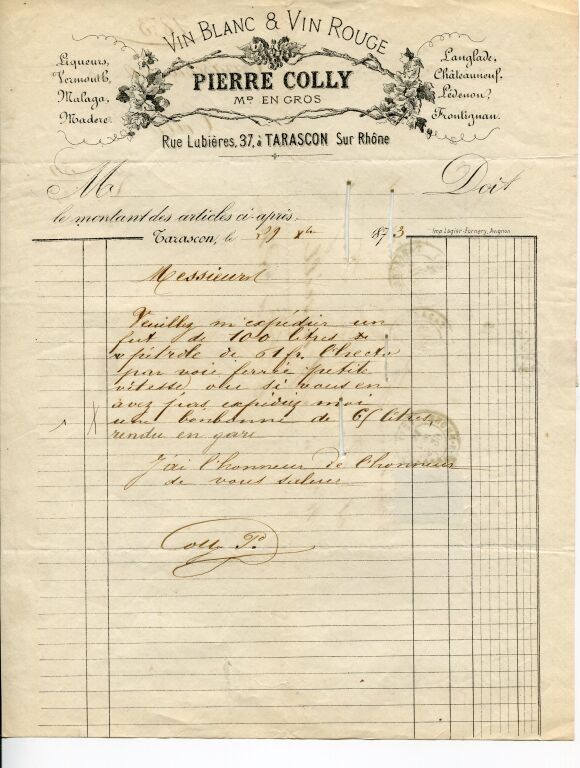 VIN BLANC & VIN ROUGE
Liqueurs,
Vermouth,
Malaga,
Madère.
PIERRE COLLY
Md EN GROS
Langlade,
Châteauneuf,
Lédenon,
Frontignan.
Rue Lubières, 37, à TARASCON Sur Rhône
M Doit
le montant des articles ci-après.
Tarascon, le 29 Xbre 1873
Imp. Logier-Fornery, Avignon
Messieurs
Veuillez m'expédier un
fut de 100 litres de
pétrole de 61 fr.
par voie ferrée petite
vitesse, ou si vous en
avez pas, expédiez moi
une bonbonne de 65 litres,
rendu en gare
J'ai l'honneur de l'honneur
de vous saluer
Colly Pe